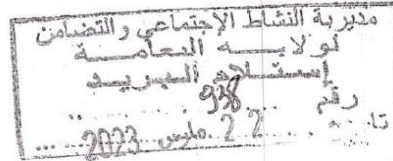 مديرية النشاط الإجتماعي والتضامن
لولايـــة النعامـــة
إستـــلام البريـــد
رقم 938
22 مارس 2023